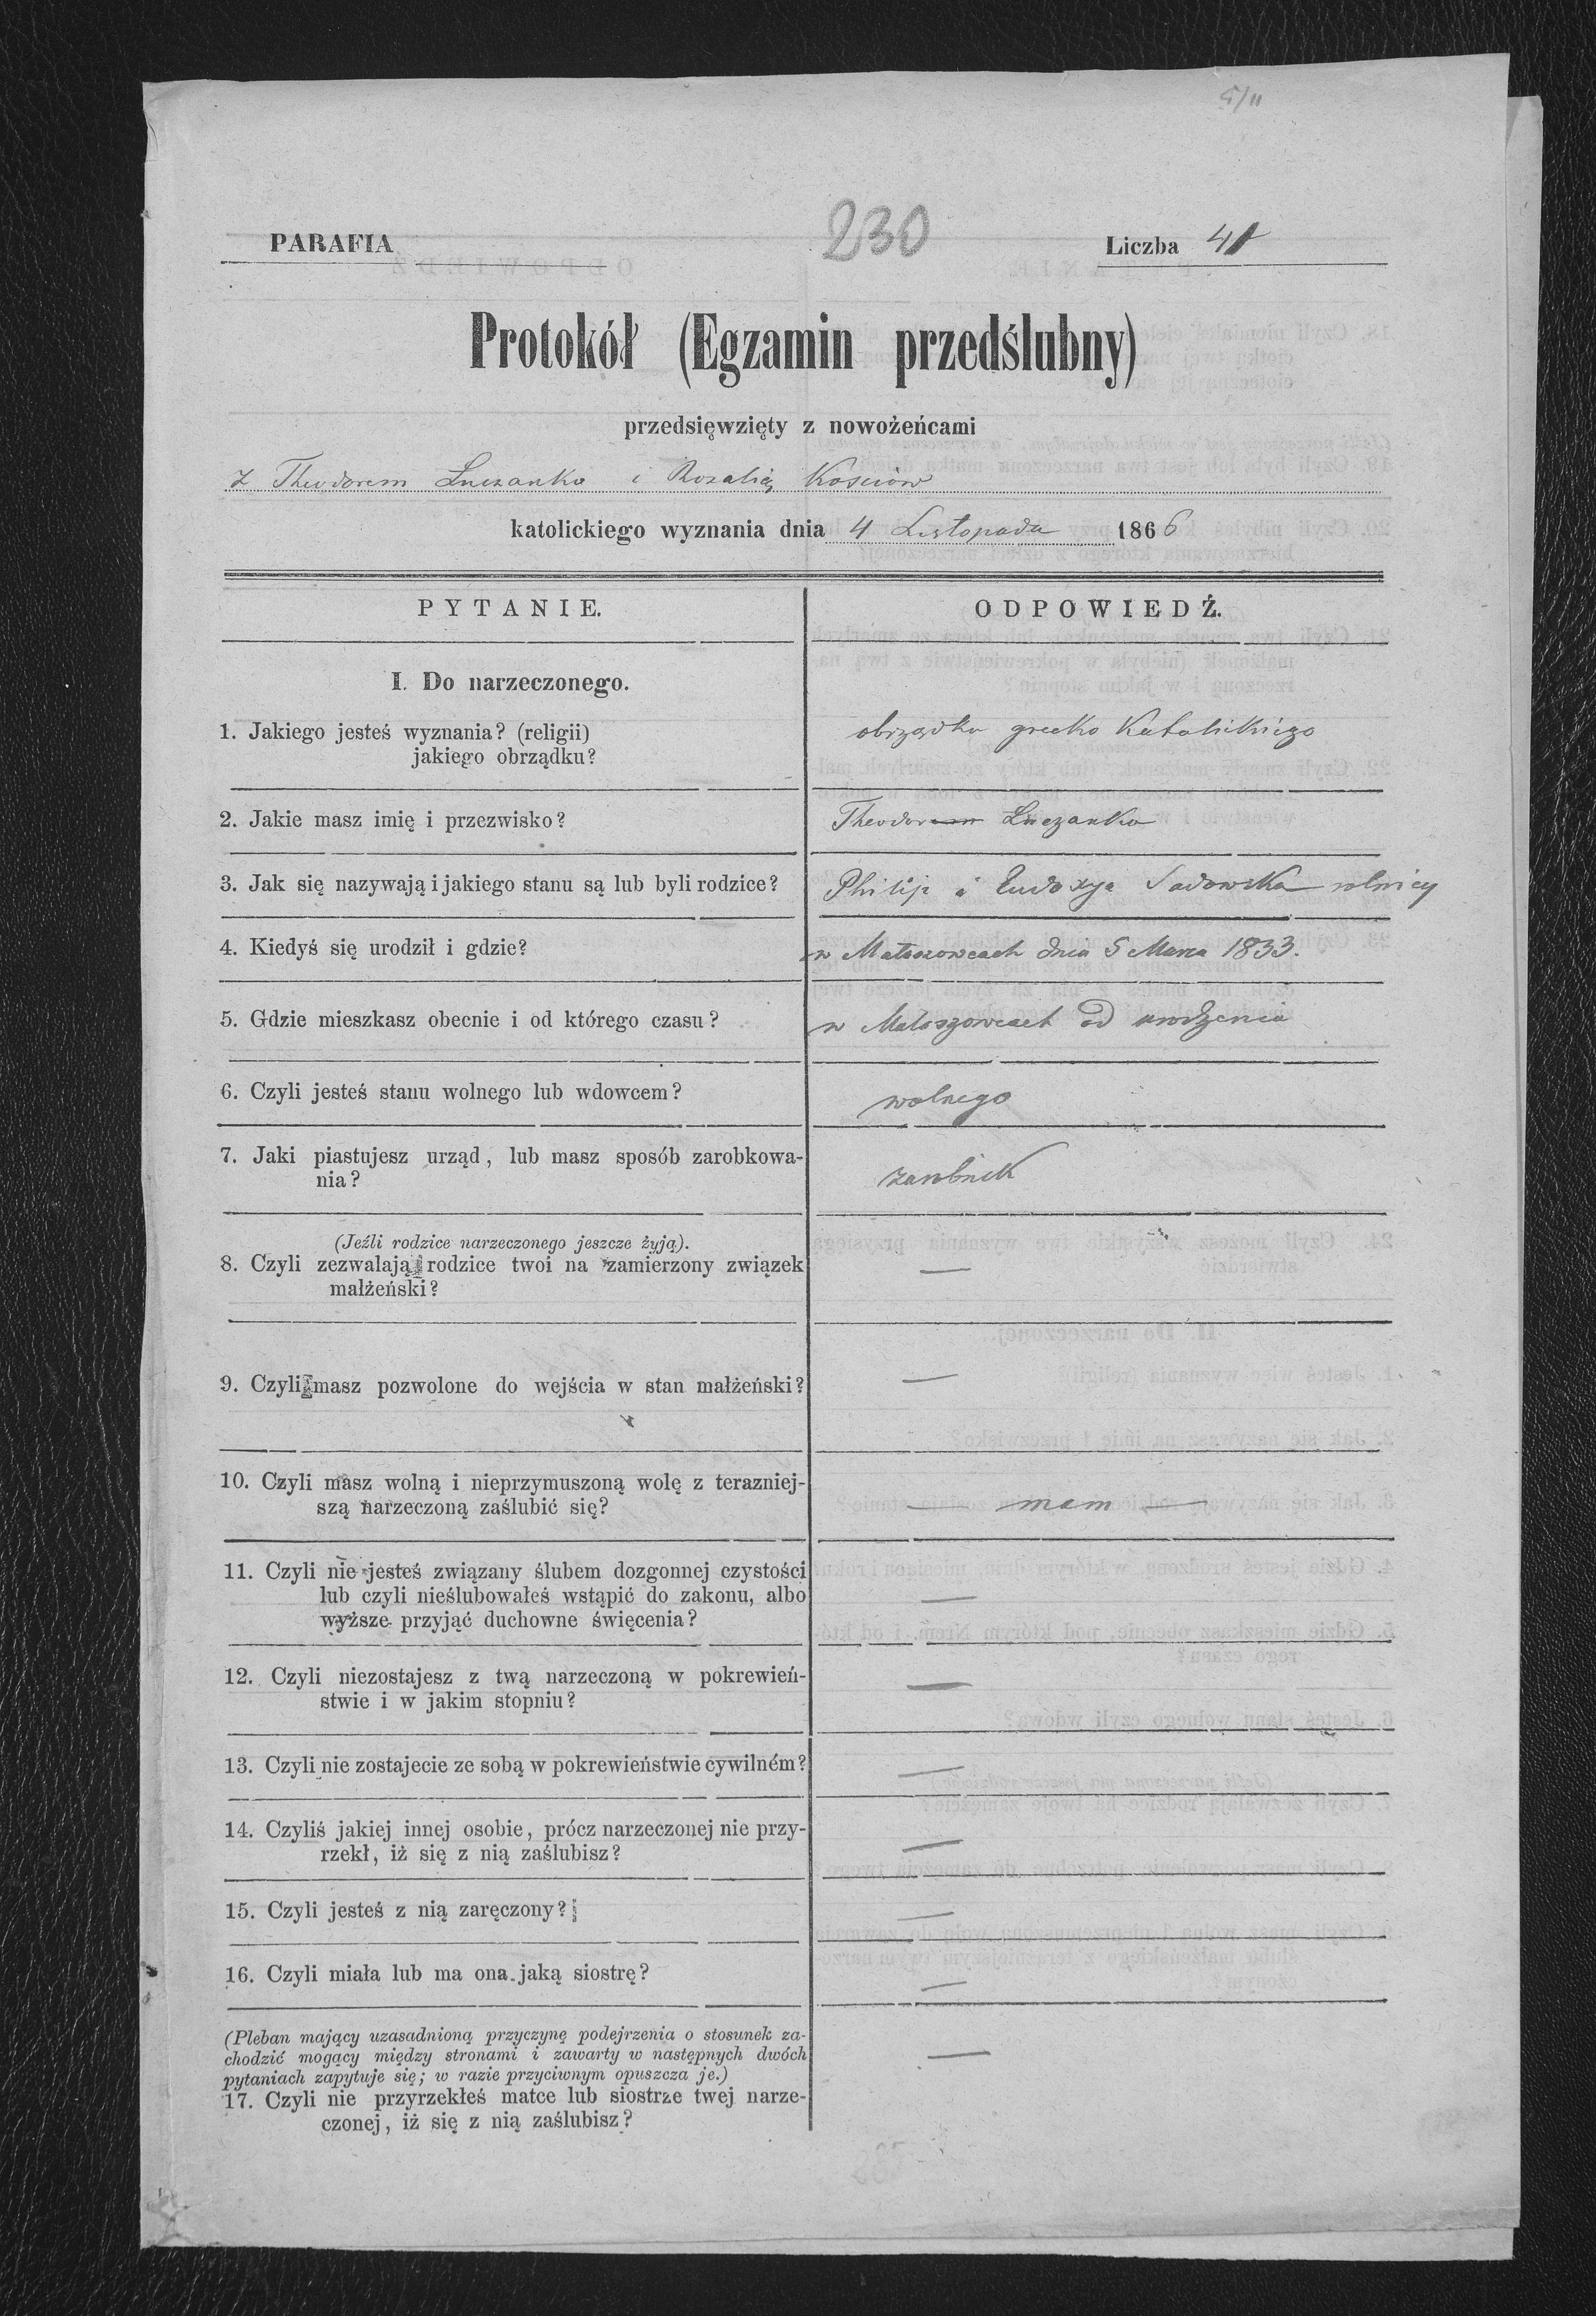 5/11
230
PARAFIA
Liczba 41
Protokół (Egzamin przedślubny)
przedsięwzięty z nowożeńcami
z Theodorem Łuczanko i Rozalią Kosciów
katolickiego wyznania dnia 4 Listopada 1866
PYTANIE.
ODPOWIEDŹ.
I. Do narzeczonego.
1. Jakiego jesteś wyznania? (religii)
jakiego obrządku?
obrządku grecko Katolickiego
2. Jakie masz imię i przezwisko?
Theodorem Łuczanko
3. Jak się nazywają i jakiego stanu są lub byli rodzice?
Philip i Eudoxya Sadowska rolnicy
4. Kiedyś się urodził i gdzie?
w Matoszowcach dnia 5 Marca 1833.
5. Gdzie mieszkasz obecnie i od którego czasu?
w Matoszowcach od urodzenia
6. Czyli jesteś stanu wolnego lub wdowcem?
wolnego
7. Jaki piastujesz urząd, lub masz sposób zarobkowa-
nia?
zarobnik
(Jeźli rodzice narzeczonego jeszcze żyją).
8. Czyli zezwalają rodzice twoi na zamierzony związek
małżeński?
—
9. Czyli masz pozwolone do wejścia w stan małżeński?
—
10. Czyli masz wolną i nieprzymuszoną wolę z terazniej-
szą narzeczoną zaślubić się?
— mam —
11. Czyli nie jesteś związany ślubem dozgonnej czystości
lub czyli nieślubowałeś wstąpić do zakonu, albo
wyższe przyjąć duchowne święcenia?
—
12. Czyli niezostajesz z twą narzeczoną w pokrewień-
stwie i w jakim stopniu?
—
13. Czyli nie zostajecie ze sobą w pokrewieństwie cywilném?
—
14. Czyliś jakiej innej osobie, prócz narzeczonej nie przy-
rzekł, iż się z nią zaślubisz?
—
15. Czyli jesteś z nią zaręczony?
—
16. Czyli miała lub ma ona jaką siostrę?
—
(Pleban mający uzasadnioną przyczynę podejrzenia o stosunek za-
chodzić mogący między stronami i zawarty w następnych dwóch
pytaniach zapytuje się; w razie przyciwnym opuszcza je.)
17. Czyli nie przyrzekłeś matce lub siostrze twej narze-
czonej, iż się z nią zaślubisz?
—